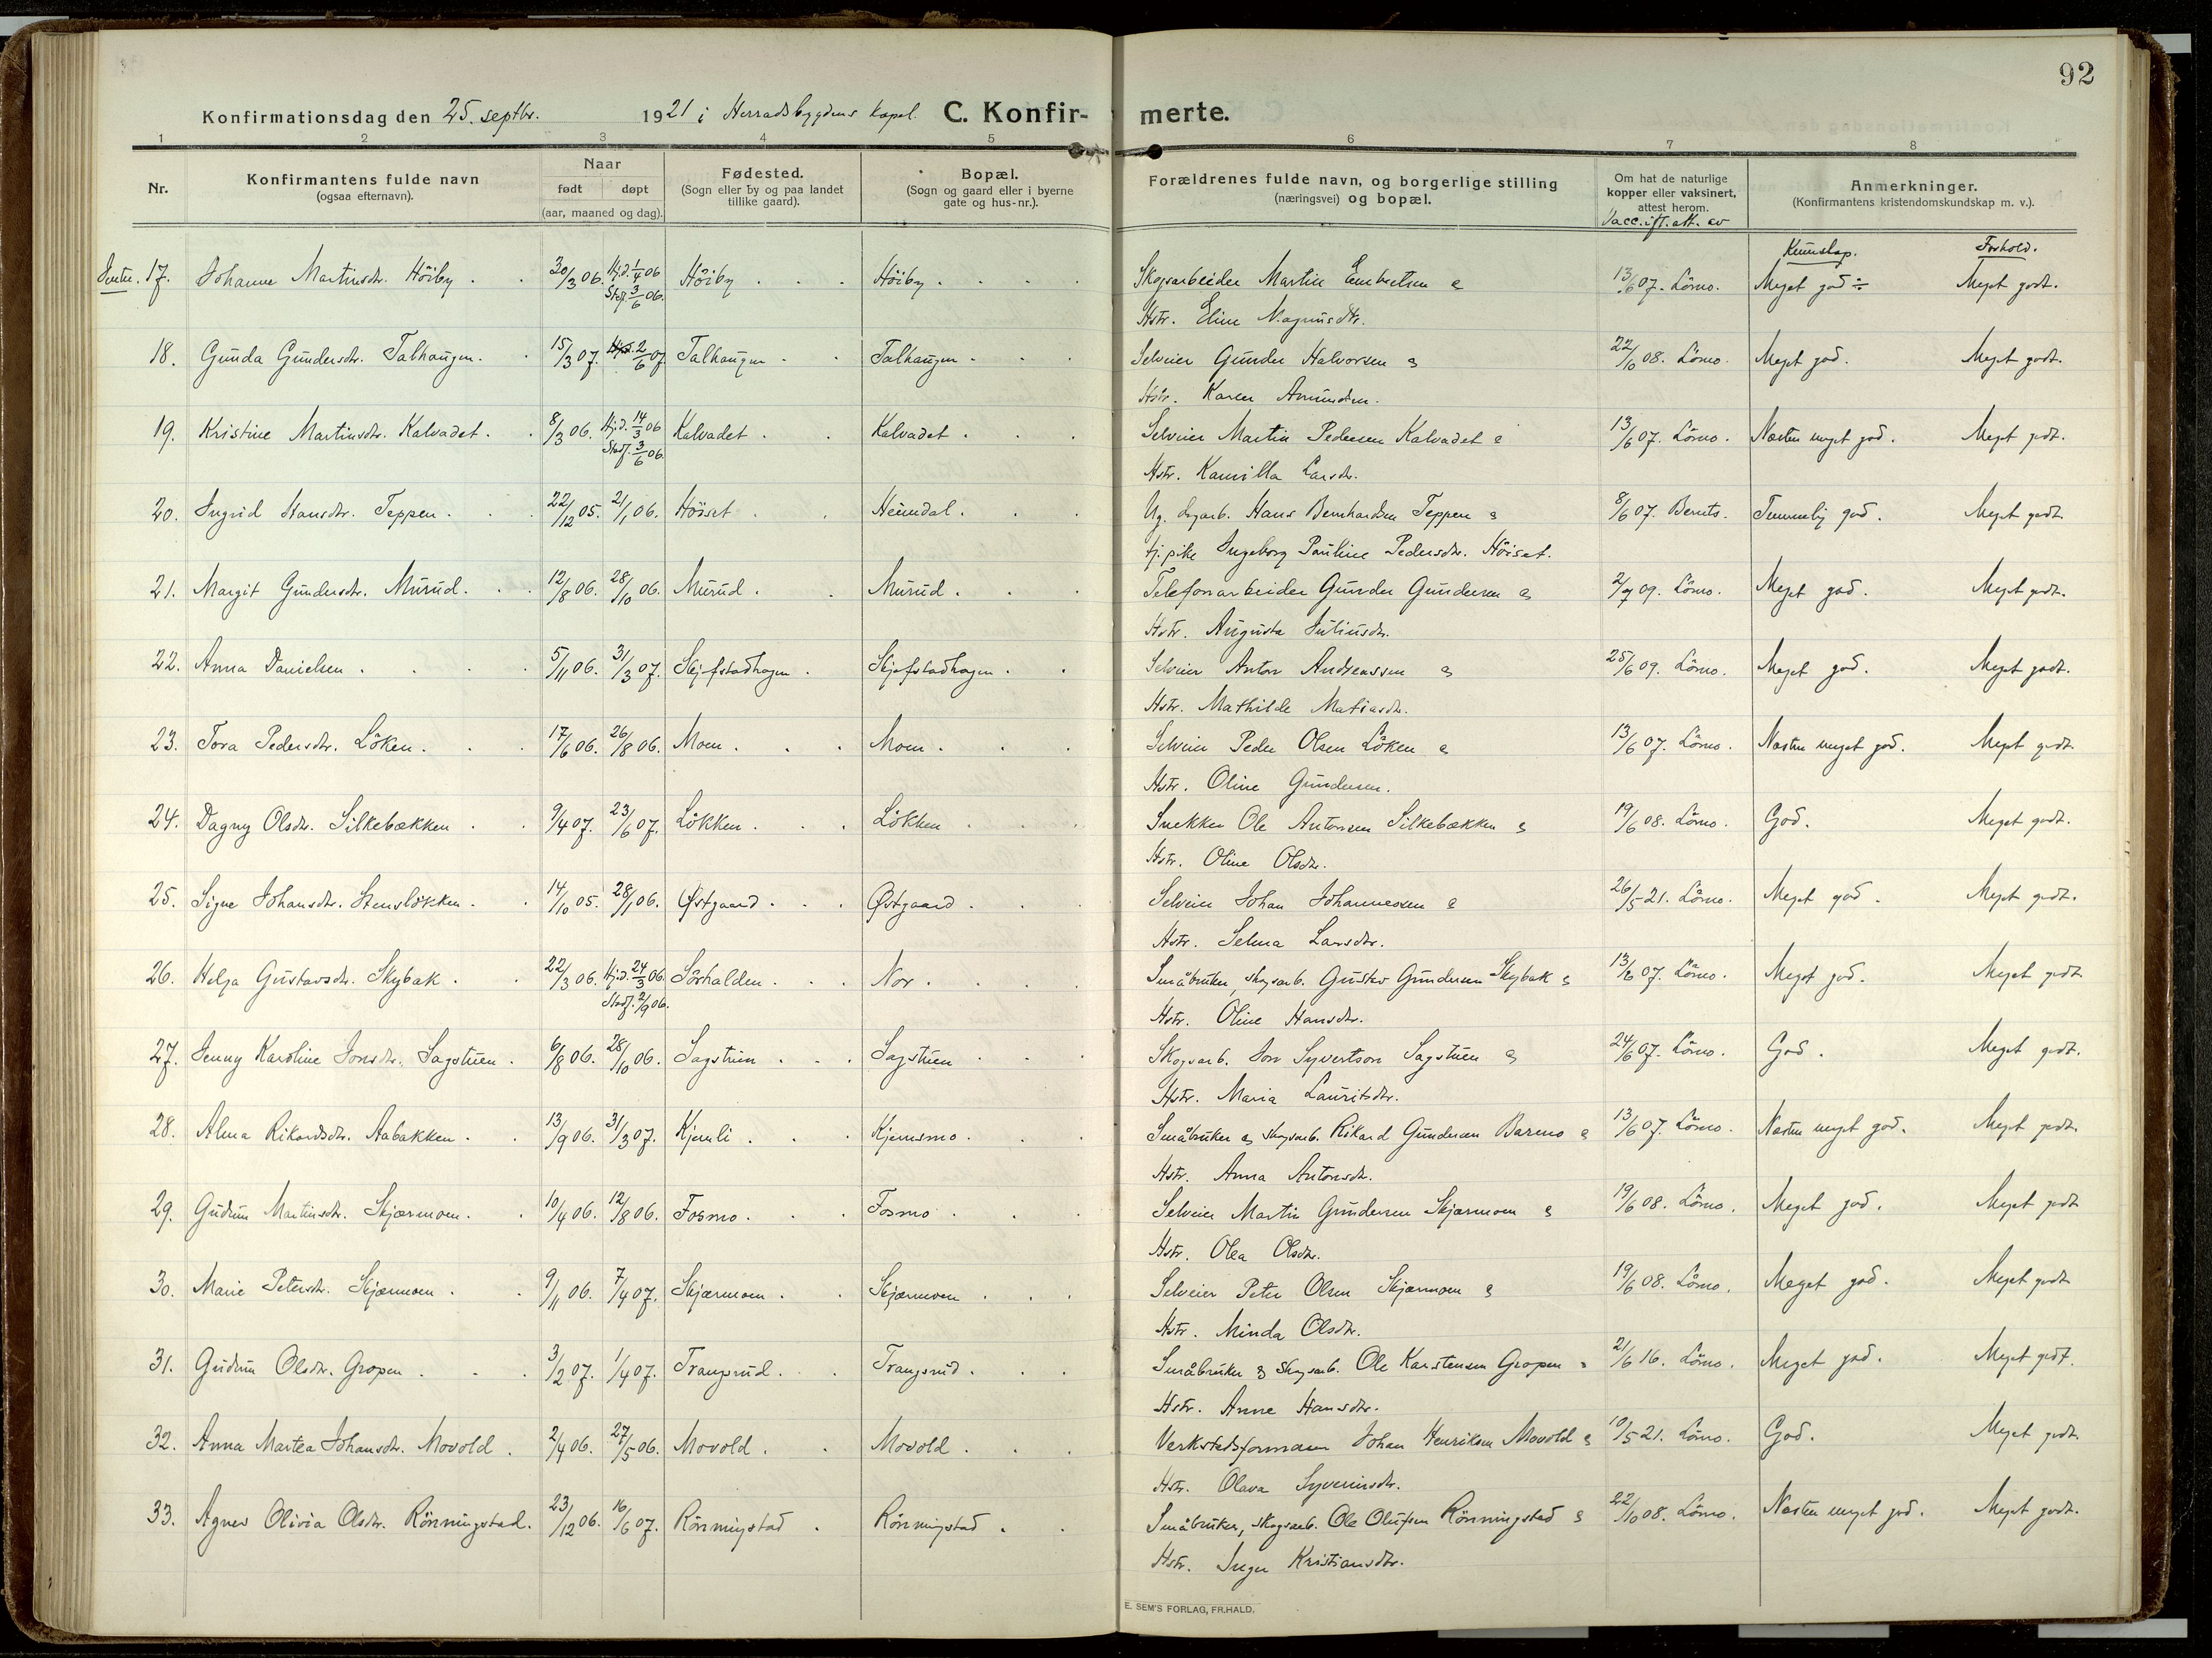 92
Konfirmationsdag den 25. septbr. 1921 i Herradsbygdens kapel. C. Konfirmerte.
1 2 3 4 5 6 7 8
Nr. Konfirmantens fulde navn (ogsaa efternavn). Naar født døpt (aar, maaned og dag). Fødested. (Sogn eller by og paa landet tillike gaard). Bopæl. (Sogn og gaard eller i byerne gate og hus-nr.). Forældrenes fulde navn, og borgerlige stilling (næringsvei) og bopæl. Om hat de naturlige kopper eller vaksinert, attest herom. Anmerkninger. (Konfirmantens kristendomskundskap m. v.).
Vacc. ift. att. av Kunnskap. Forhold.
Jenter. 17. Johanne Martinsdtr. Höiby. 30/3 06. Hj.d. 1/4 06 Stadf. 3/6 06. Höiby. Höiby. Skogsarbeider Martin Embretsen & 13/6 07. Lömo. Meget god ÷ Meget godt.
Hstr. Eline Magnusdtr.
18. Gunda Gundersdtr. Talhaugen. 15/3 07. 2/6 07 Talhaugen Talhaugen Selveier Gunder Halvorsen & 22/10 08. Lömo. Meget god. Meget godt.
Hstr. Karen Amundsen.
19. Kristine Martinsdtr. Kalvadet. 8/3 06. Hj.d. 14/3 06 Stadf. 3/6 06. Kalvadet Kalvadet. Selveier Martin Pedersen Kalvadet & 13/6 07. Lömo. Næsten meget god. Meget godt.
Hstr. Kamilla Larsdtr.
20. Ingrid Hansdtr. Teppen. 22/12 05. 21/1 06. Höiset Heimdal. Ug. dagarb. Hans Bernhardsen Teppen & 8/6 07. Bernts. Temmelig god. Meget godt.
tj. pike Ingeborg Pauline Pedersdtr. Höiset.
21. Margit Gundersdtr. Murud. 12/8 06. 28/10 06. Murud. Murud. Telefonarbeider Gunder Gundersen & 2/7 09. Lömo. Meget god. Meget godt.
Hstr. Augusta Juliusdtr.
22. Anna Danielsen. 5/11 06. 31/3 07. Skjefstadhagen. Skjefstadhagen. Selveier Anton Andreassen & 25/6 09. Lömo. Meget god. Meget godt.
Hstr. Mathilde Matiasdtr.
23. Tora Pedersdtr. Löken. 17/6 06. 26/8 06. Moen. Moen. Selveier Peder Olsen Löken & 13/6 07. Lömo. Næsten meget god. Meget godt
Hstr. Oline Gundersen.
24. Dagny Olsdtr. Silkebækken. 9/4 07. 23/6 07. Lökken. Lökken Snekker Ole Antonsen Silkebækken & 19/6 08. Lömo. God. Meget godt.
Hstr. Oline Olsdtr.
25. Signe Johansdtr. Stenslökken. 14/10 05. 28/1 06. Østgaard. Østgaard. Selveier Johan Johannessen & 26/5 21. Lömo. Meget god. Meget godt.
Hstr. Selma Larsdtr.
26. Helga Gustavsdtr. Skybak. 22/3 06. Hj.d. 24/3 06. Stadf. 2/9 06. Sörhalden. Nor. Småbruker, skogsarb. Gustav Gundersen Skybak & 13/6 07. Lömo. Meget god. Meget godt
Hstr. Oline Hansdtr.
27. Jenny Karoline Jonsdtr. Sagstuen. 6/8 06. 28/10 06. Sagstuen Sagstuen Skogsarb. Jon Syvertson Sagstuen & 24/6 07. Lömo. God. Meget godt.
Hstr. Maria Lauritsdtr.
28. Alma Rikardsdtr. Aabakken. 13/9 06. 31/3 07. Kjemli. Kjernsmo. Småbruker & skogsarb. Rikard Gundersen Barmo & 13/6 07. Lömo. Næsten meget god. Meget godt.
Hstr. Anna Antonsdtr.
29. Gudrun Martinsdtr. Skjærmoen. 10/4 06. 12/8 06. Fosmo. Fosmo. Selveier Martin Gundersen Skjærmoen & 19/6 08. Lömo. Meget god. Meget godt
Hstr. Olea Olsdtr.
30. Marie Petersdtr. Skjærmoen. 9/11 06. 7/4 07. Skjærmoen. Skjærmoen. Selveier Peter Olsen Skjærmoen & 19/6 08. Lömo. Meget god. Meget godt
Hstr. Minda Olsdtr.
31. Gudrun Olsdtr. Gropen. 3/2 07. 1/4 07. Trangsrud. Trangsrud. Småbruker & skogsarb. Ole Karstensen Gropen & 21/6 16. Lömo. Meget god. Meget godt.
Hstr. Anne Hansdtr.
32. Anna Martea Johansdtr. Movold. 2/4 06. 27/5 06. Movold. Movold. Verkstedsformann Johan Henriksen Movold & 10/5 21. Lömo. God. Meget godt.
Hstr. Olava Syverinsdtr.
33. Agnes Olivia Olsdtr. Rönningstad. 23/12 06. 16/6 07. Rönningstad. Rönningstad. Småbruker, skogsarb. Ole Olufsen Rönningstad & 22/10 08. Lömo. Næsten meget god. Meget godt.
Hstr. Inger Kristiansdtr.
E. SEM'S FORLAG, FR.HALD.